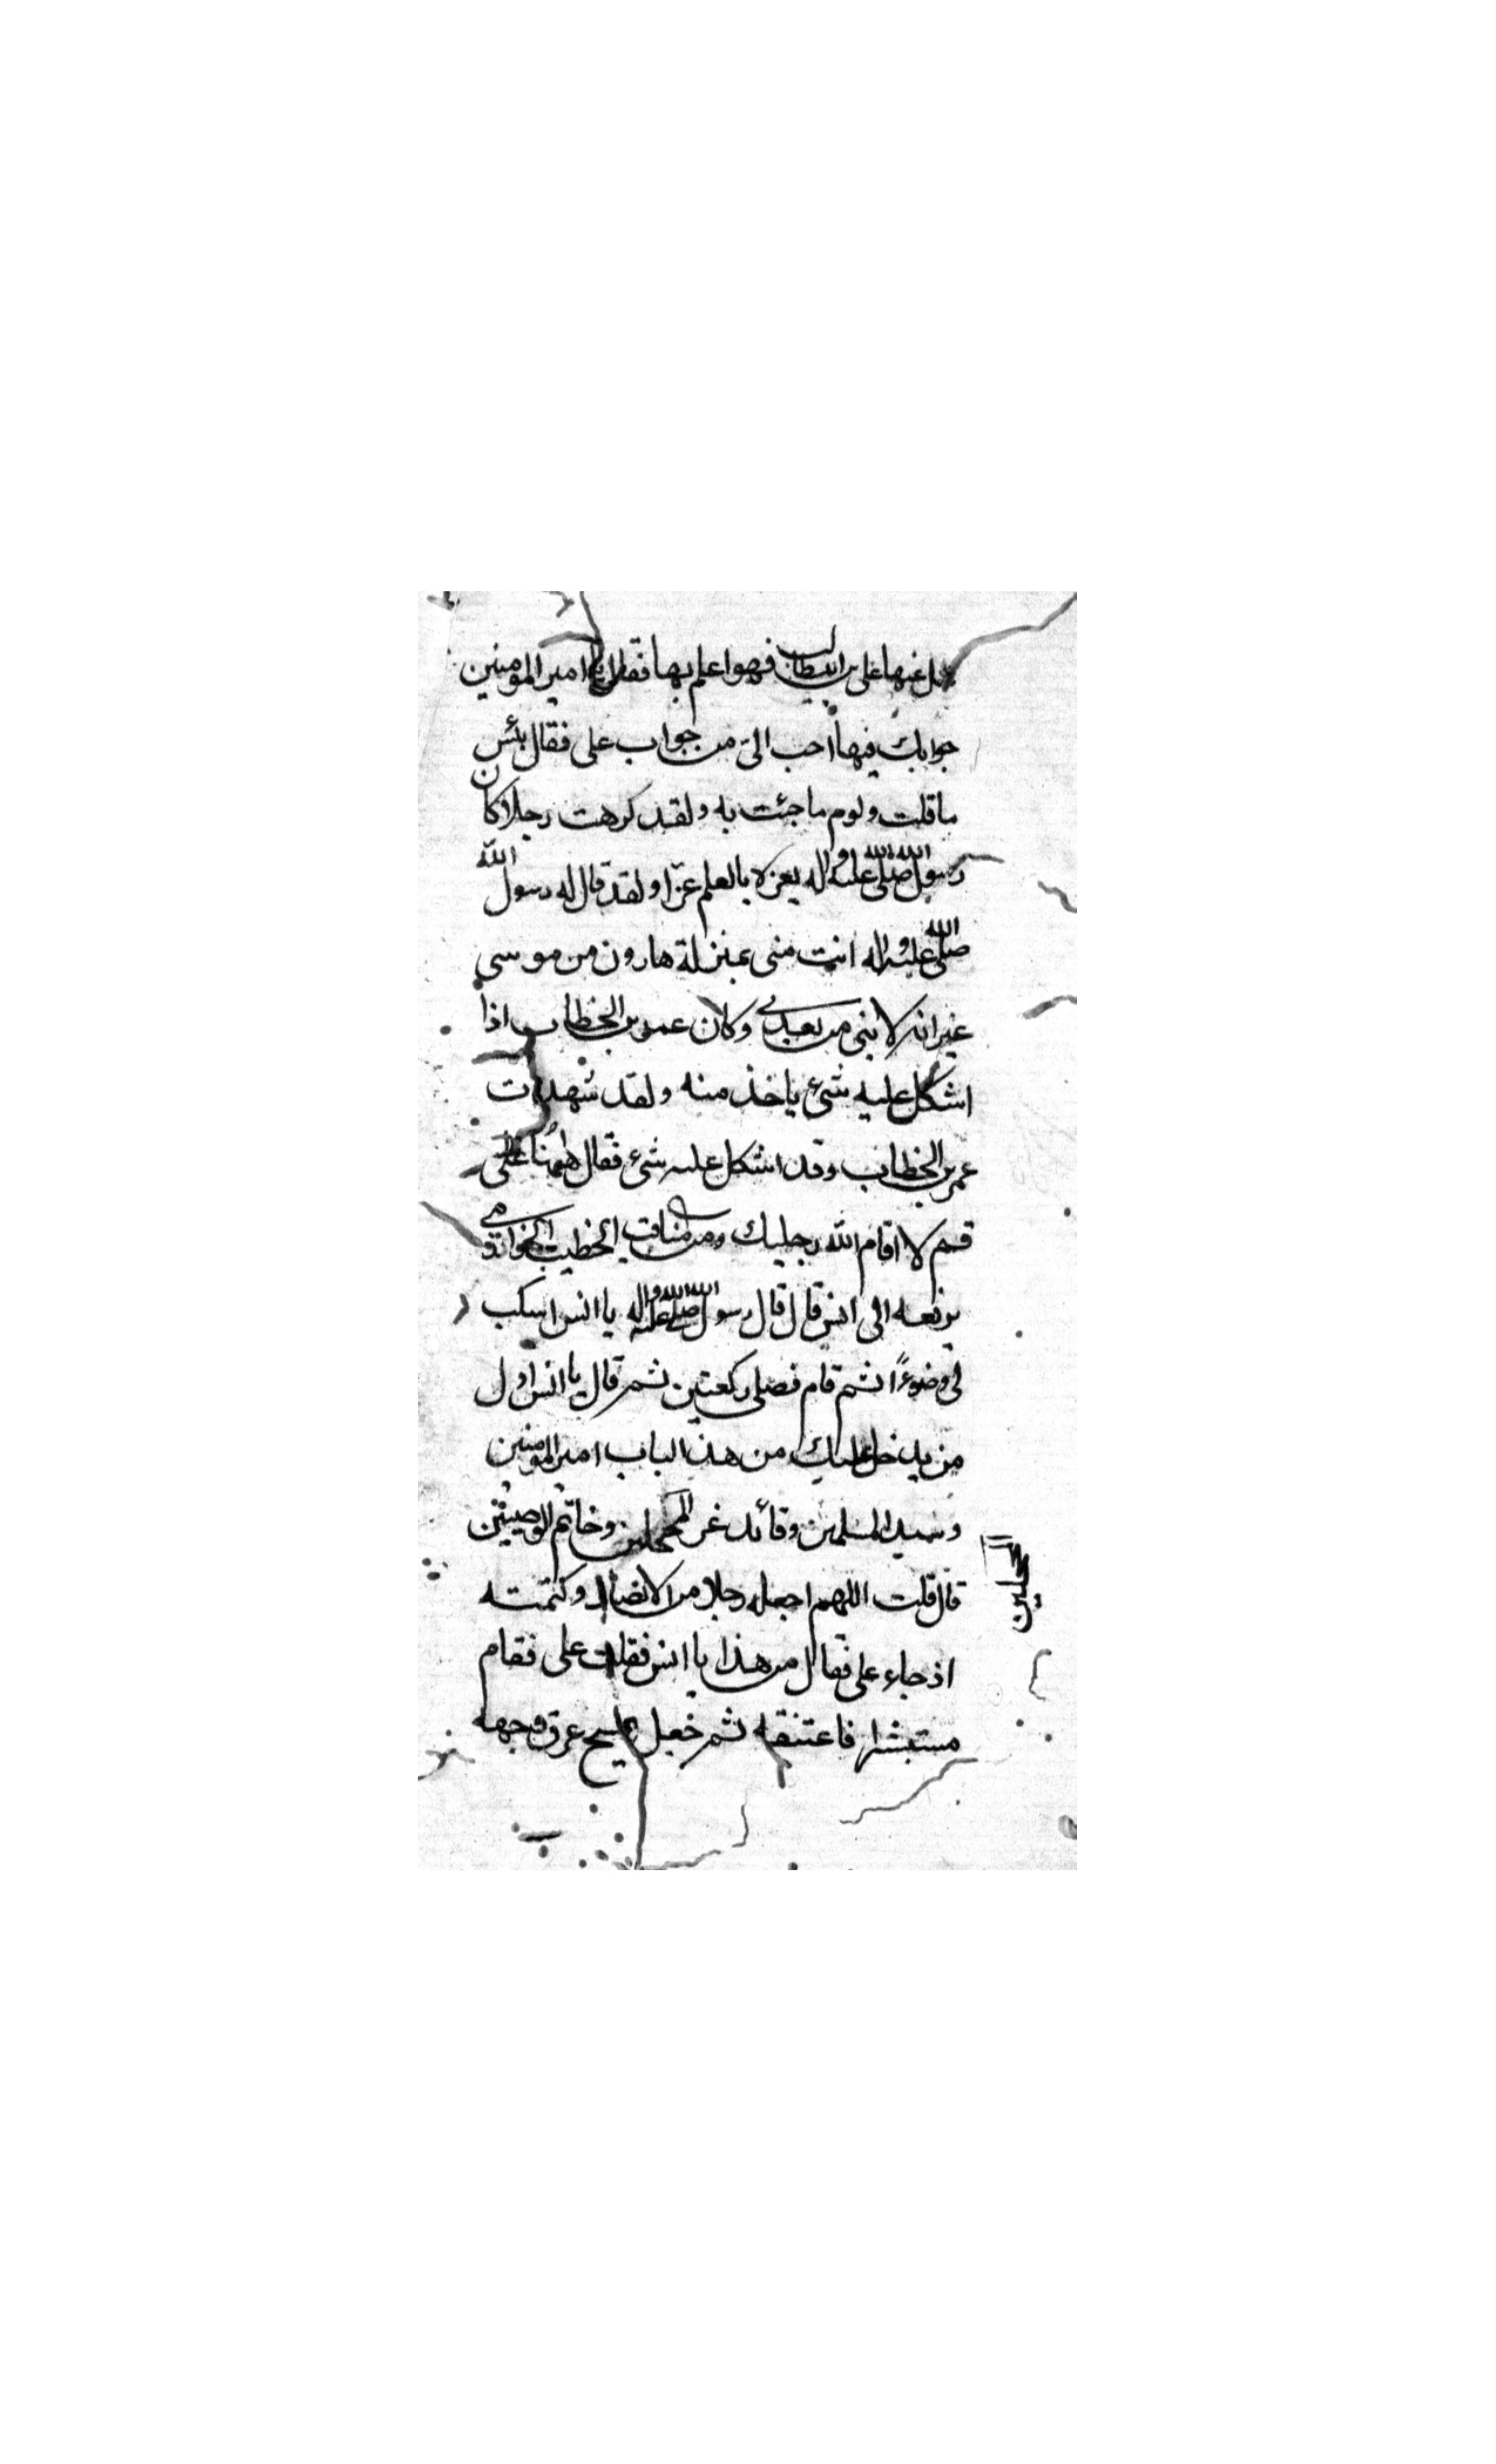 سل عنها علي بن ابيطالب فهو اعلم بها فقال يا امير المومنين
جوابك فيها احب الىّ من جواب على فقال بئس
ماقلت ولوم ما جئت به ولقد كرهت رجلا كان
رسول الله صلى الله عليه واله يعزه بالعلم عزّا ولقد قال له رسول الله
صلى الله عليه واله انت منى بمنزلة هارون من موسى
غير انه لا نبى من بعدي وكان عمر بن الخطاب اذا
اشكل عليه شئ ياخذ منه ولقد شهدت
عمر بن الخطاب وقد اشكل عليه شئ فقال ههُنا على
قسم لا اقام الله رجليك ومن مناقب الخطيب الخوارزمي
يرفعه الى انس قال قال رسول الله صلى الله عليه واله يا انس اسكب
لى وضوءًا ثم قام فصلى ركعتين ثم قال يا انس اول
من يدخل عليك من هذا الباب امير المومنين
وسيد المسلمين وقائد غر المحجلين وخاتم الوصيّين
قال قلت اللهم اجعله رجلا من الانصار وكتمته
اذ جاء على فقال من هذا يا انس فقلت على فقام
مستبشرا فاعتنقه ثم جعل يمسح عرق وجهه
المحجلين